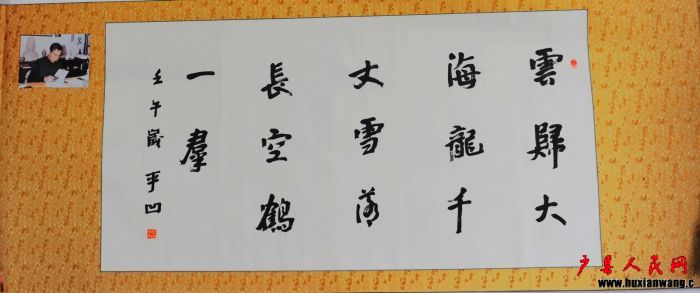 雲歸大
海龍千
丈雪落
長空鶴
一羣
壬午歲 平凹
户县人民网
www.huxianwang.c